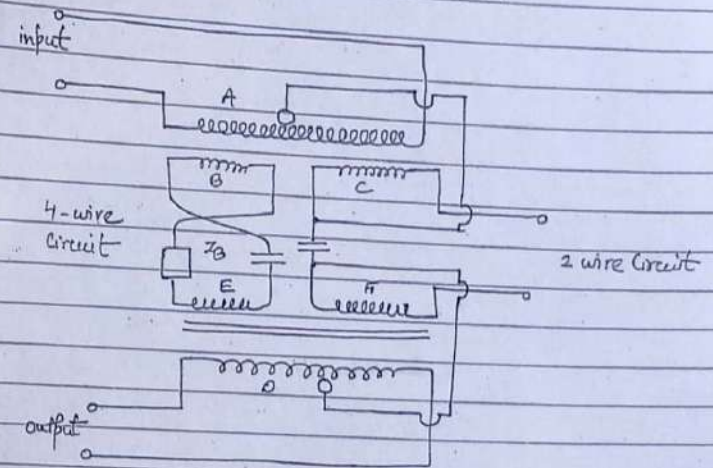 input
A
B
C
4-wire
Circuit
ZB
2 wire Circuit
E
F
D
output